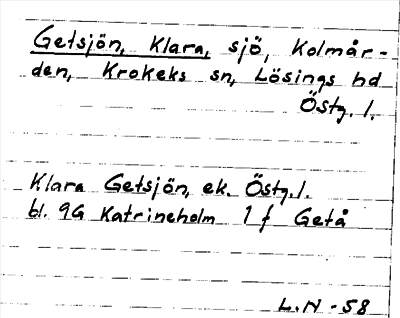 Getsjön, Klara, sjö, Kolmår-
den, Krokeks sn, Lösings hd
Östg. l.
Klara Getsjön, ek. Östg. l.
bl. 9G Katrineholm 1 f Getå
L.N -58